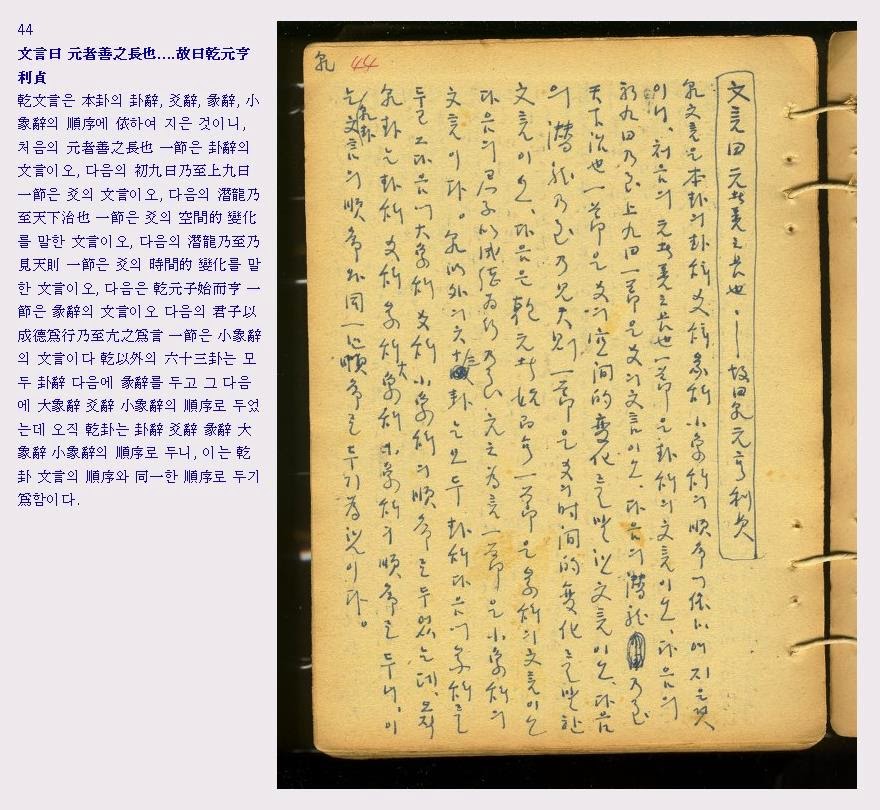 44
文言曰 元者善之長也....故曰乾元亨
利貞
乾文言은 本卦의 卦辭, 爻辭, 彖辭, 小
象辭의 順序에 依하여 지은 것이니,
처음의 元者善之長也 一節은 卦辭의
文言이오, 다음의 初九曰乃至上九曰
一節은 爻의 文言이오, 다음의 潛龍乃
至天下治也 一節은 爻의 空間的 變化
를 말한 文言이오, 다음의 潛龍乃至乃
見天則 一節은 爻의 時間的 變化를 말
한 文言이오, 다음은 乾元子始而亨 一
節은 彖辭의 文言이오 다음의 君子以
成德爲行乃至亢之爲言 一節은 小象辭
의 文言이다 乾以外의 六十三卦는 모
두 卦辭 다음에 彖辭를 두고 그 다음
에 大象辭 爻辭 小象辭의 順序로 두었
는데 오직 乾卦는 卦辭 爻辭 彖辭 大
象辭 小象辭의 順序로 두니, 이는 乾
卦 文言의 順序와 同一한 順序로 두기
爲함이다.
乾 44
文言曰 元者善之長也 · — 故曰乾元亨利貞
乾文言은 本卦의 卦辭 爻辭 彖辭 小象辭의 順序에 依하여 지은것
이니, 처음의 元者善之長也 一節은 卦辭의 文言이오, 다음의
初九曰乃至上九曰 一節은 爻의 文言이오, 다음의 潛龍 乃至
天下治也 一節은 爻의 空间的 變化를 말한 文言이오, 다음
의 潛龍乃至乃見天則 一節은 爻의 时间的 變化를 말한
文言이오, 다음은 乾元者始而亨 一節은 彖辭의 文言이오
다음의 君子以成德爲行乃至亢之爲言 一節은 小象辭의
文言이다。 乾以外의 六十三卦는 모두 卦辭 다음에 彖辭를
두고 그 다음에 大象辭 爻辭 小象辭의 順序로 두었는데, 오직
乾卦는 卦辭 爻辭 彖辭 大象辭 小象辭의 順序로 두니, 이
는 乾卦文言의 順序와 同一한 順序로 두기 爲함이다。